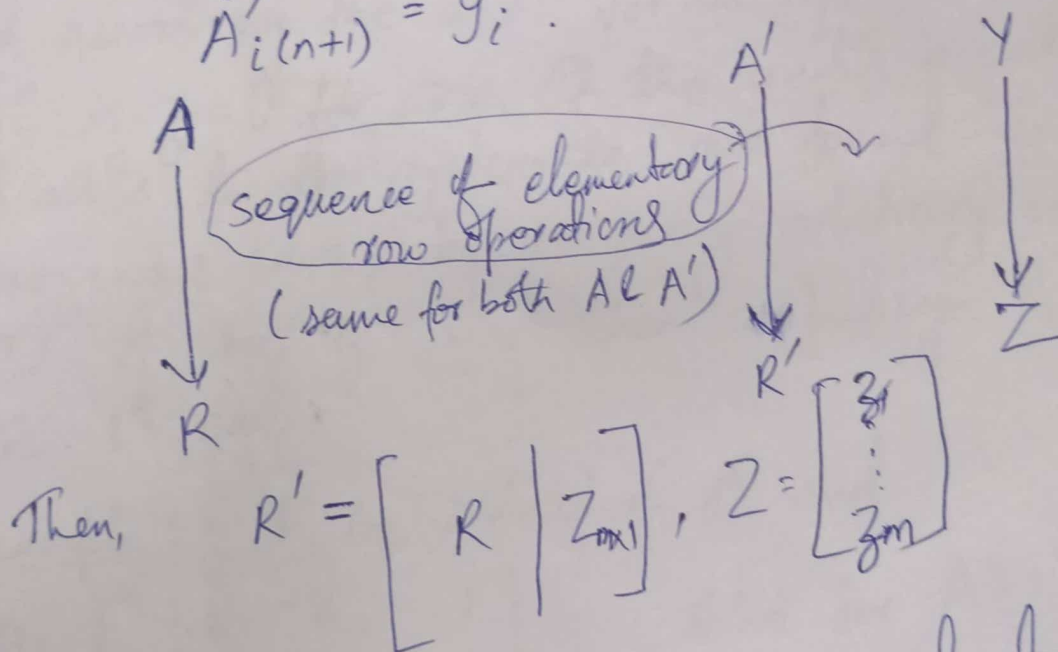 A'i(n+1) = yi .
A A' Y
sequence of elementary
row operations
(same for both A & A')
R R' Z
Then, R' = [ R | Zmx1 ] , Z = [ z1 ⋮ zm ]